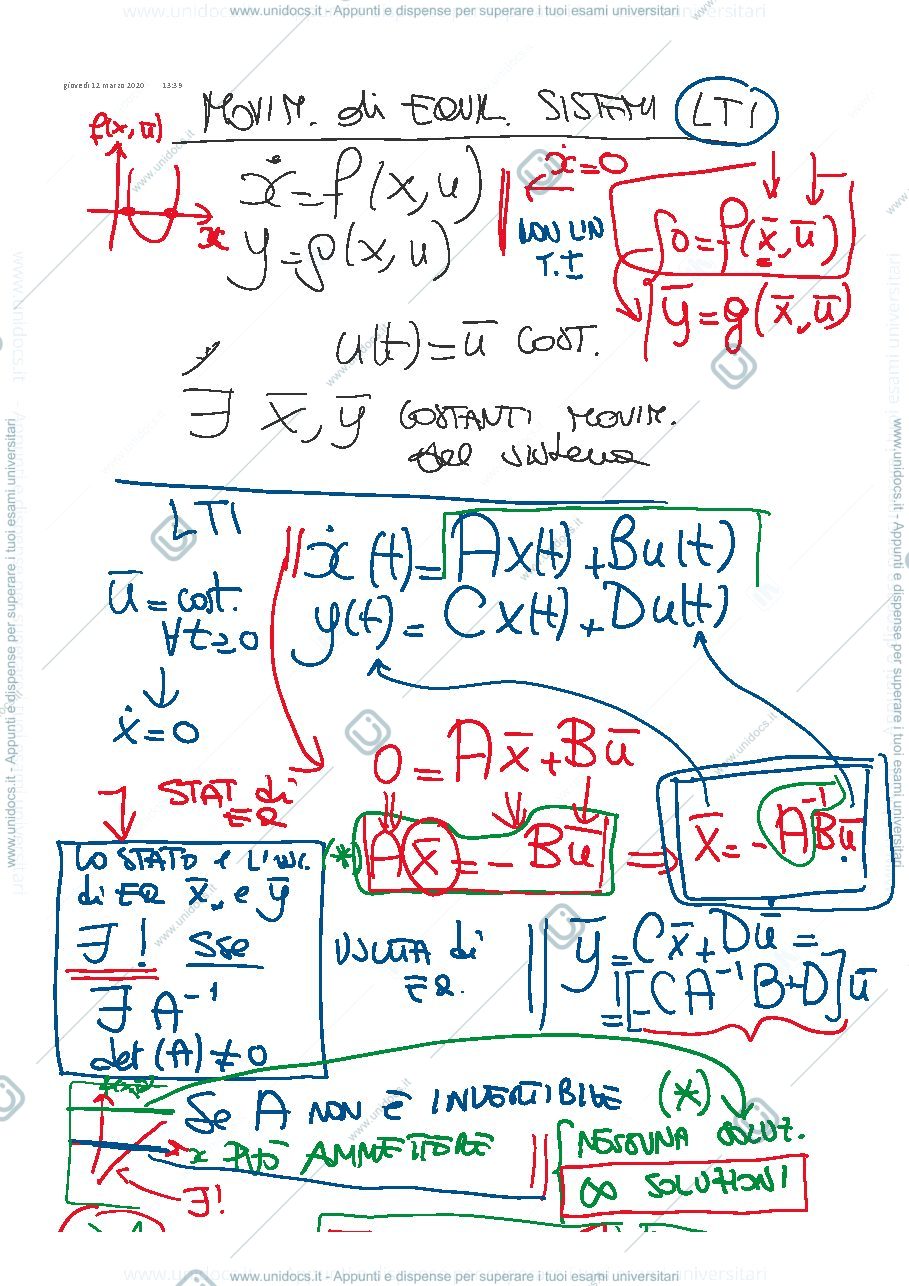 www.unidocs.it - Appunti e dispense per superare i tuoi esami universitari
giovedì 12 marzo 2020 13:39
MOVIM. di EQUIL. SISTEMI LTI
f(x, ū)
x
ẋ = f(x, u)
y = g(x, u)
ẋ = 0
NON LIN
T.I
0 = f(x̄, ū)
ȳ = g(x̄, ū)
u(t) = ū COST.
∃ x̄, ȳ COSTANTI MOVIM.
del sistema
LTI
ẋ(t) = Ax(t) + Bu(t)
y(t) = Cx(t) + Du(t)
ū = cost.
∀ t ≥ 0
ẋ = 0
0 = Ax̄ + Bū
STAT di
EQ
(*) Ax̄ = - Bū ⇒ x̄ = - A⁻¹Bū
LO STATO e L'USC.
di EQ x̄ e ȳ
∃! sse
∃ A⁻¹
det (A) ≠ 0
USCITA di
EQ.
ȳ = Cx̄ + Dū =
= [-CA⁻¹B + D] ū
Se A NON È INVERTIBILE (*)
x PUÒ AMMETTERE
NESSUNA SOLUZ.
∞ SOLUZIONI
∃!
www.unidocs.it - Appunti e dispense per superare i tuoi esami universitari